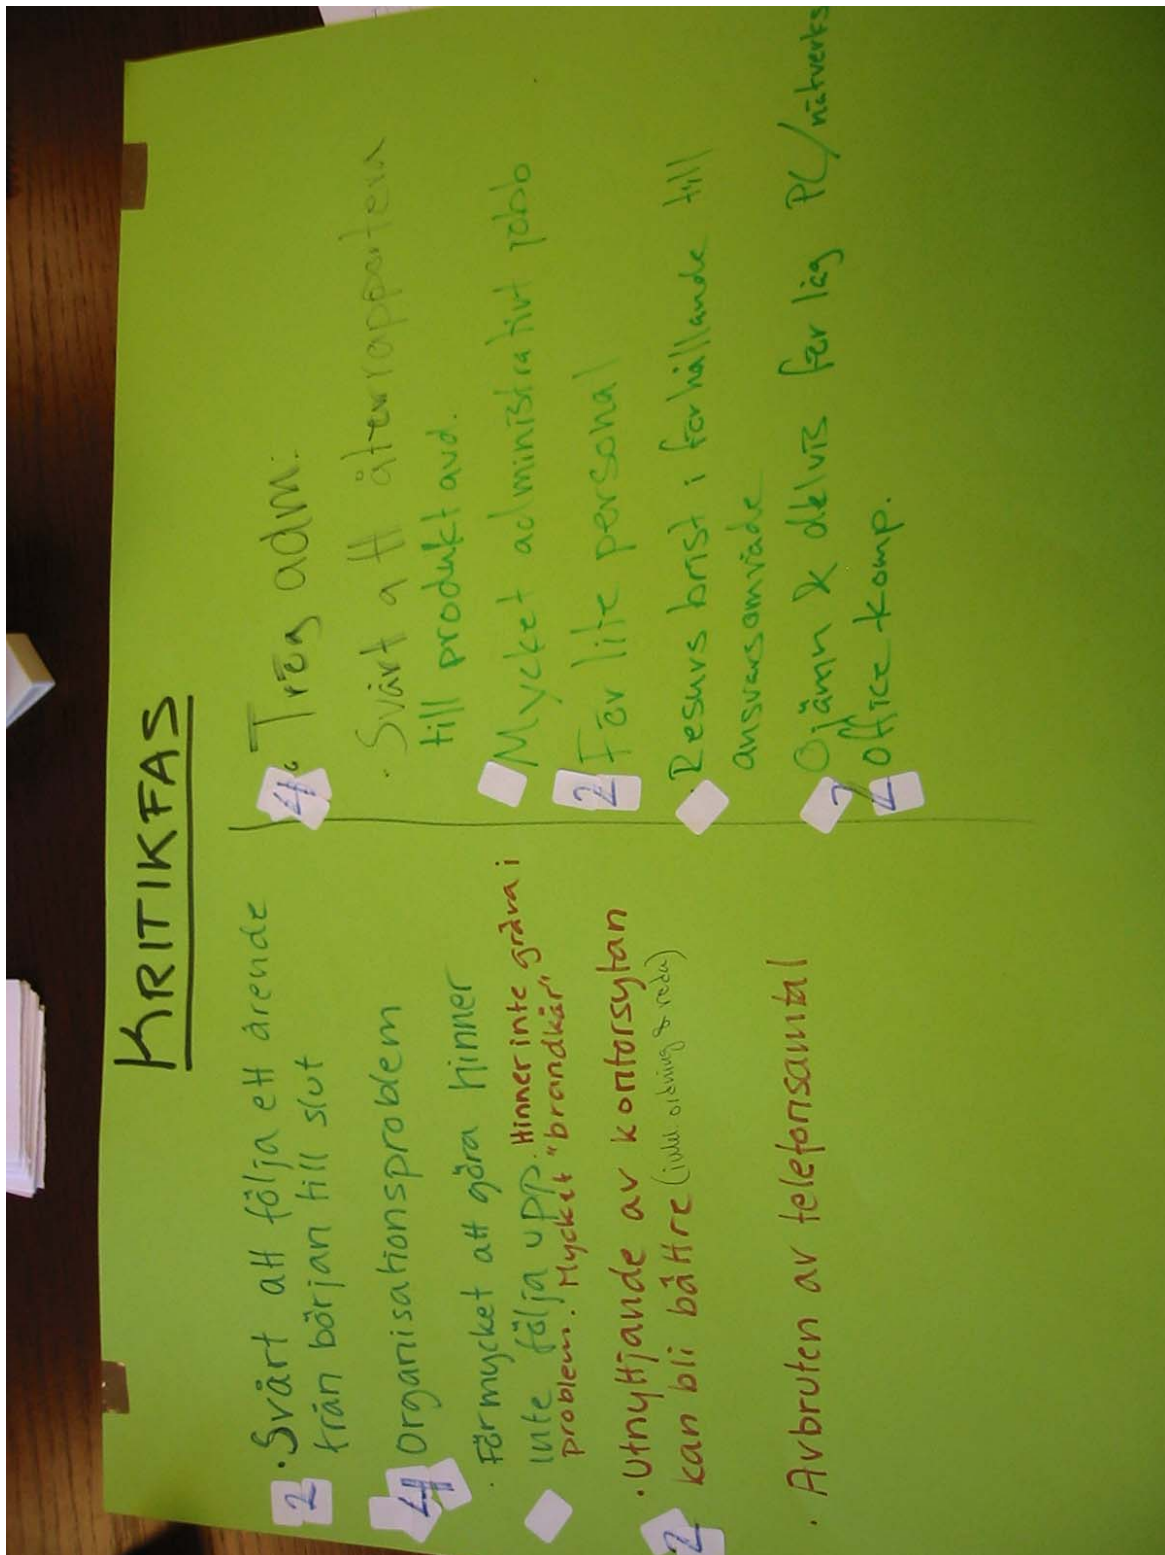 KRITIKFAS
2 · Svårt att följa ett ärende
från början till slut
4 Organisationsproblem
· Förmycket att göra hinner
inte följa upp. Hinner inte gräva i
problem. Mycket "brandkår"
· Utnyttjande av kontorsytan
2 kan bli bättre (inkl ordning & reda)
· Avbruten av telefonsamtal
4 · Trög adm.
· Svårt att återrapportera
till produkt avd.
Mycket administrativt jobb
2 För lite personal
· Resurs brist i förhållande till
ansvarsområde
Ojämn & delvis för låg PC/nätverks
2 office komp.